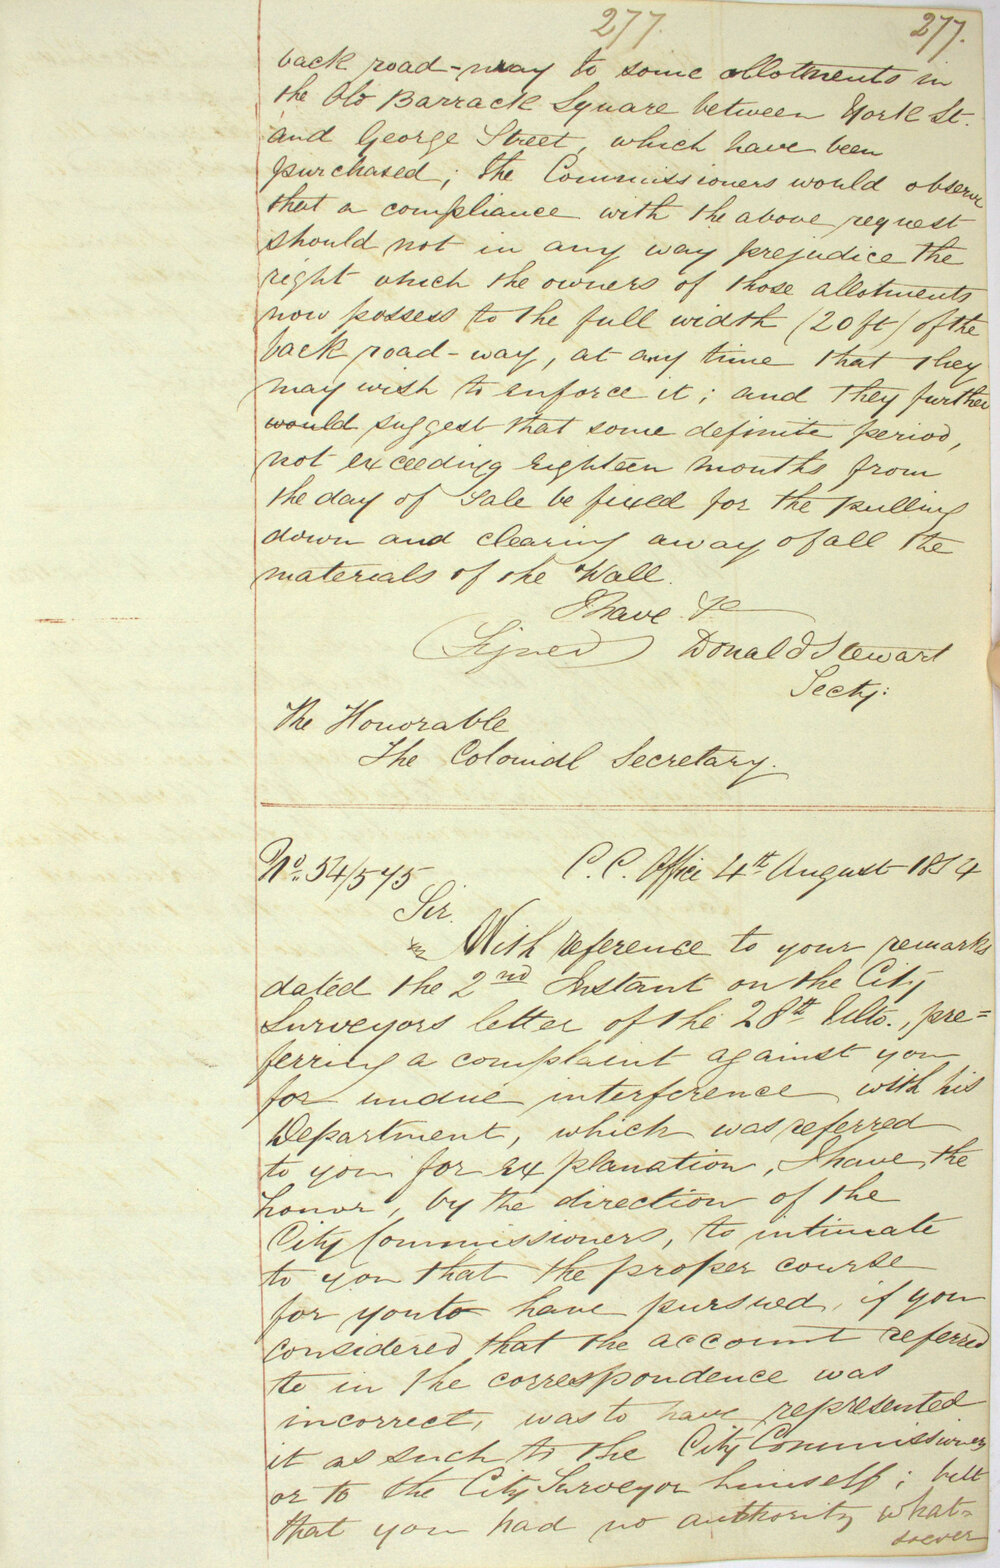 277.
277.
back road-way to some allotments in
the Old Barrack Square between York St.
and George Street, which have been
purchased; the Commissioners would observe
that a compliance with the above request
should not in any way prejudice the
right which the owners of those allotments
now possess to the full width (20 ft) of the
back road-way, at any time that they
may wish to enforce it; and they further
would suggest that some definite period,
not exceeding eighteen months from
the day of Sale be fixed for the pulling
down and clearing away of all the
materials of the Wall.
I have &c
(Signed) Donald Stewart
Secty:
The Honorable
The Colonial Secretary.
No. 54/575 C. C. Office 4th August 1854
Sir.
With reference to your remarks
dated the 2nd Instant on the City
Surveyors letter of the 28th Ulto., pre=
ferring a complaint against you
for undue interference with his
Department, which was referred
to you for explanation, I have the
honor, by the direction of the
City Commissioners, to intimate
to you that the proper course
for you to have pursued, if you
considered that the account referred
to in the correspondence was
incorrect, was to have represented
it as such to the City Commissioners
or to the City Surveyor himself; but
that you had no authority what=
soever